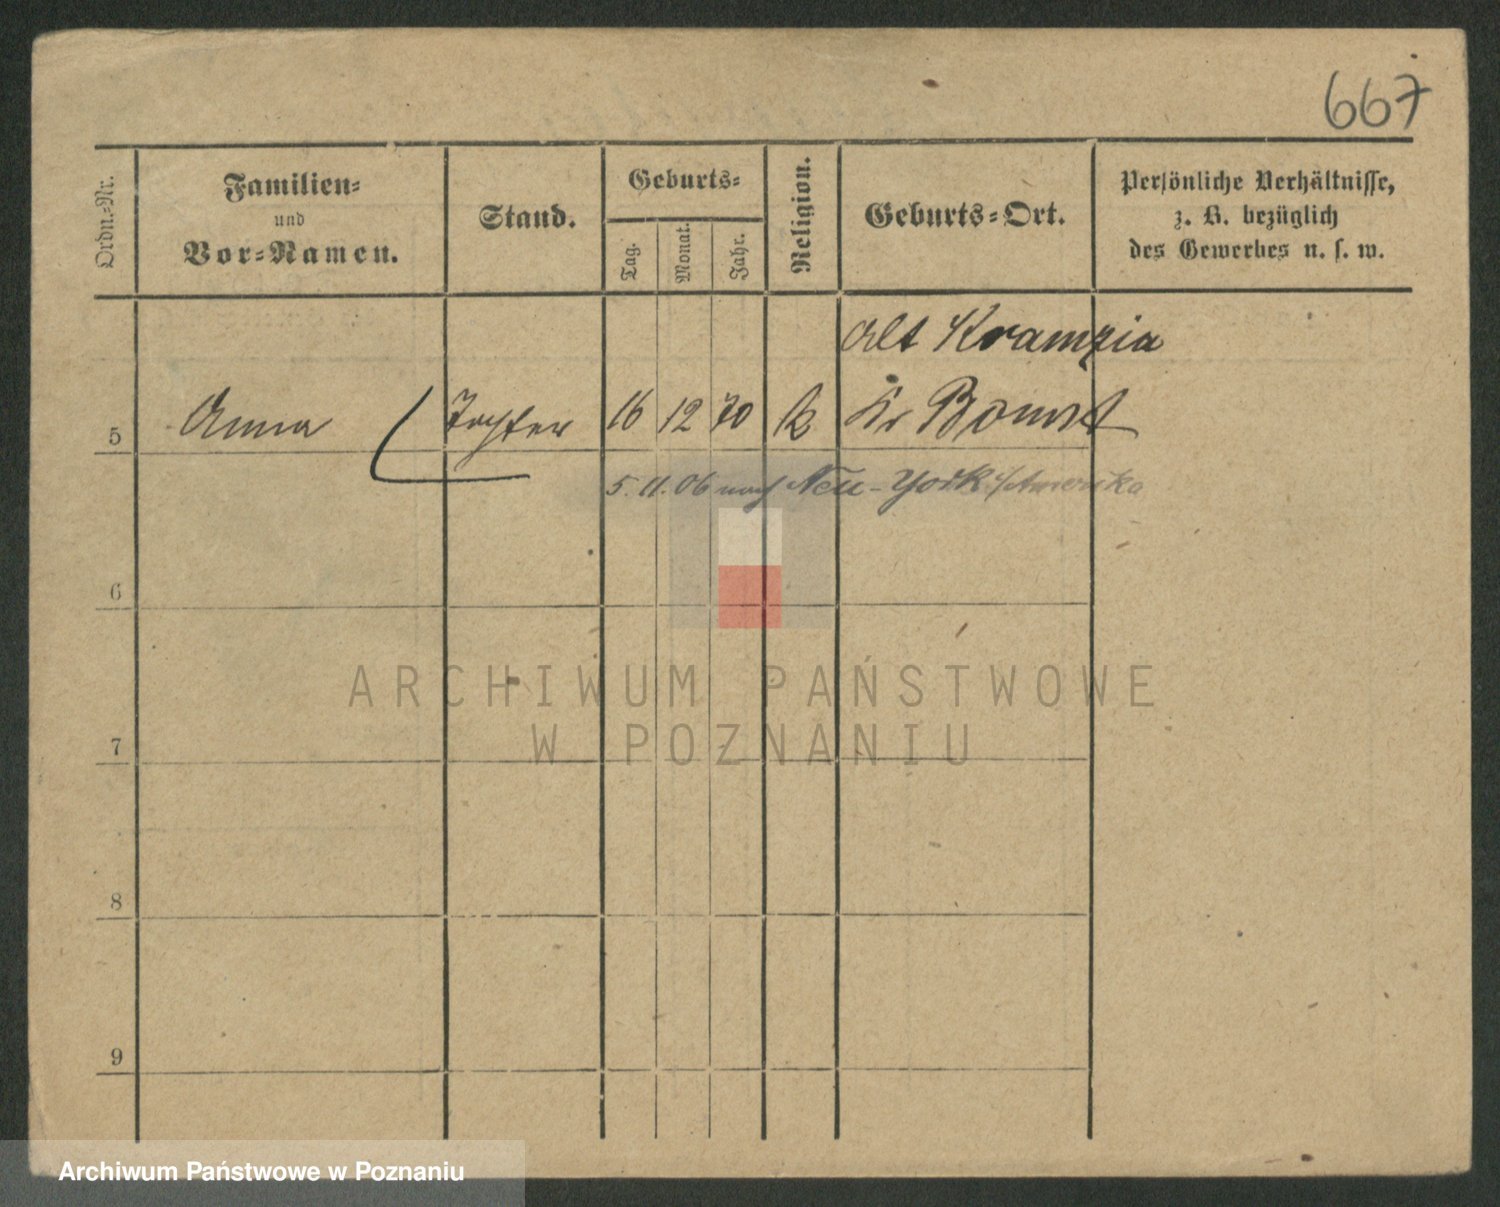 667
Ordn.=Nr.
Familien=
und
Vor=Namen.
Stand.
Geburts=
Tag.
Monat.
Jahr.
Religion.
Geburts=Ort.
Persönliche Verhältnisse,
z. B. bezüglich
des Gewerbes u. s. w.
Alt Kramzia
5 Anna Tochter 16 12 70 k Kr Bomst
5. 11. 06 nach Neu-York /Amerika
6
7
8
9
ARCHIWUM PAŃSTWOWE
W POZNANIU
Archiwum Państwowe w Poznaniu